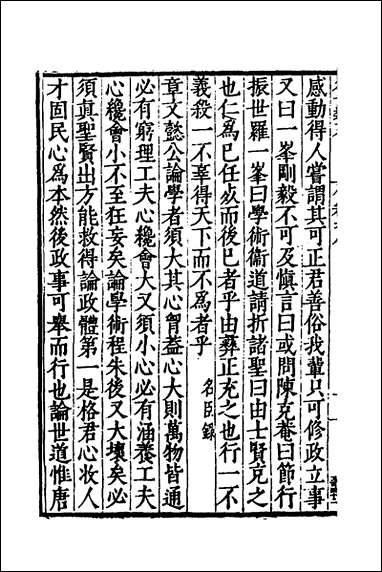 感動得人嘗謂其可正君善俗我輩只可修政立事
又曰一峯剛毅不可及慎言曰或問陳克菴曰節行
振世羅一峯曰學術衞道請折諸聖曰由士賢克之
也仁爲已任歿而後已者乎由彝正充之也行一不
義殺一不辜得天下而不爲者乎　名臣錄
章文懿公論學者須大其心胷葢心大則萬物皆通
必有窮理工夫心纔會大又須小心必有涵養工夫
心纔會小不至狂妄矣論學術程朱後又大壞矣必
須眞聖賢出方能救得論政體第一是格君心收人
才固民心爲本然後政事可舉而行也論世道惟唐